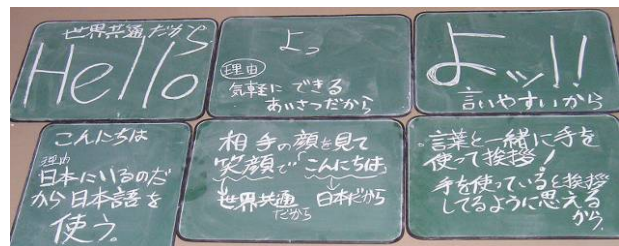 世界共通だから
Hello
よっ
理由
気軽に できる
あいさつだから
よッ!!
言いやすいから
こんにちは
理由
日本にいるのだ
から日本語を
使う。
相手の顔を見て
笑顔で「こんにちは」
世界共通 日本だから
だから
言葉と一緒に手を
使って挨拶!
手を使っていると挨拶
してるように思える
から。